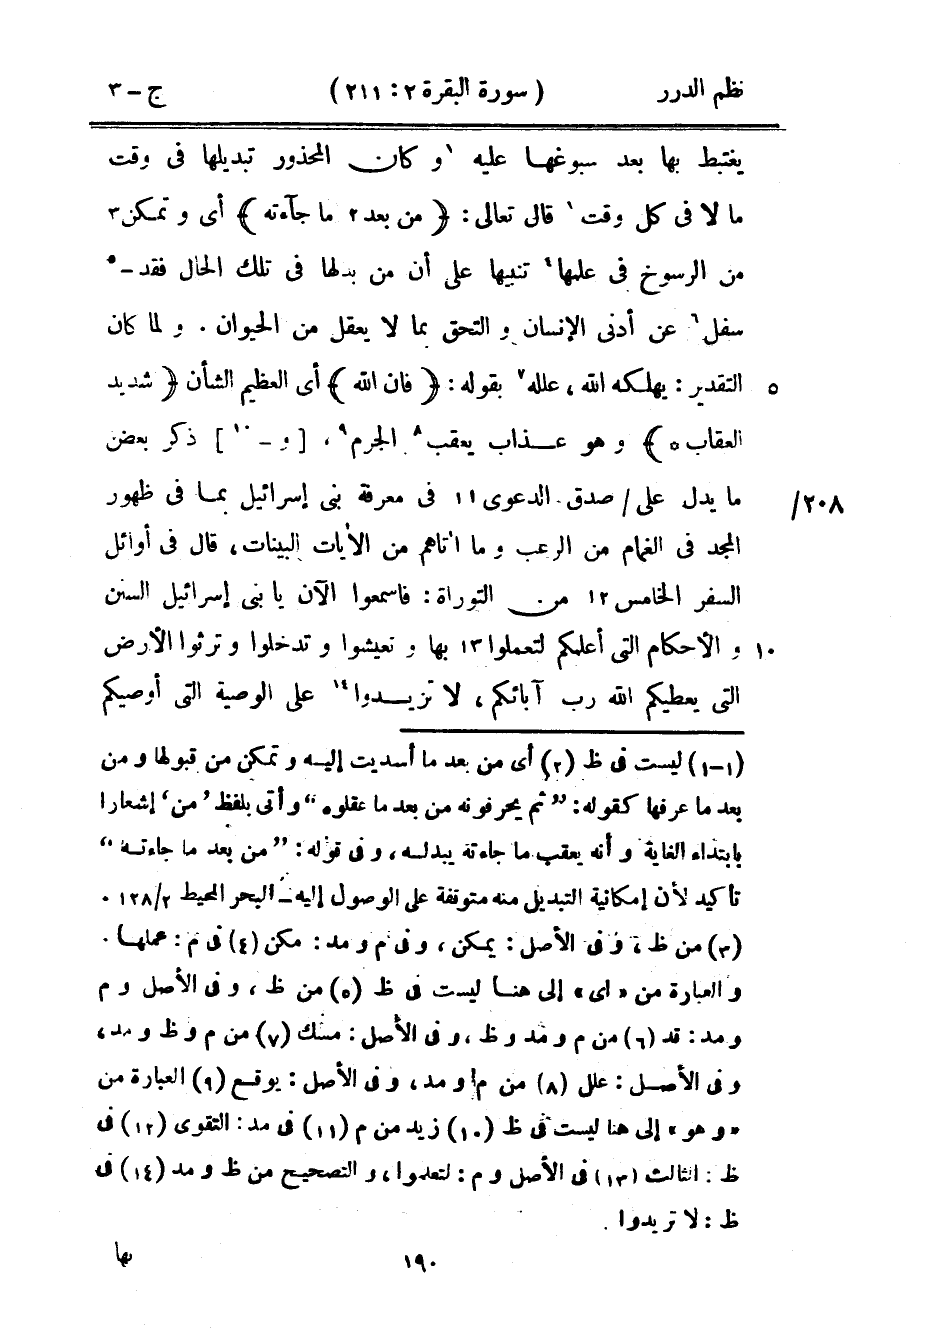 نظم الدرر ( سورة البقرة ٢ : ٢١١ ) ج – ٣
يغتبط بها بعد سبوغها عليه ١و كان المحذور تبديلها فى وقت
ما لا فى كل وقت١ قال تعالى : ﴿ من بعد٢ ما جآءته ﴾ أى و تمكن٣
من الرسوخ فى علمها٤ تنبيها على أن من بدلها فى تلك الحال فقد –٥
سفل٦ عن أدنى الإنسان و التحق بما لا يعقل من الحيوان . و لما كان
٥ التقدير : يهلكه الله ، علله٧ بقوله : ﴿ فان الله ﴾ أى العظيم الشأن ﴿ شديد
العقاب ٥ ﴾ و هو عذاب يعقب٨ الجرم٩ ، [ و – ١٠ ] ذكر بعض
ما يدل على / صدق الدعوى ١١ فى معرفة بنى إسرائيل بما فى ظهور /٢٠٨
المجد فى الغمام من الرعب و ما اتاهم من الأيات البينات ، قال فى أوائل
السفر الخامس ١٢ من التوراة : فاسمعوا الآن يا بنى إسرائيل السنن
١٠ و الأحكام التى أعلمكم لتعملوا ١٣ بها و تعيشوا و تدخلوا و ترثوا الأرض
التى يعطيكم الله رب آبائكم ، لا تزيدوا١٤ على الوصية التى أوصيكم
(١–١) ليست فى ظ (٢) أى من بعد ما أسديت إليه و تمكن من قبولها و من
بعد ما عرفها كقوله : ” ثم يحرفونه من بعد ما عقلوه “ و أتى بلفظ ’ من ‘ إشعارا
بابتداء الغاية و أنه يعقب ما جاءته يبدله ، و فى قوله : ” من بعد ما جاءته “
تأكيد لأن إمكانية التبديل منه متوقفة على الوصول إليه – البحر المحيط ٢/١٢٨ .
(٣) من ظ ، و فى الأصل : يمكن ، و فى م و مد : مكن (٤) فى م : عملها .
و العبارة من « اى » إلى هنا ليست فى ظ (٥) من ظ ، و فى الأصل و م
و مد : قد (٦) من م و مد و ظ ، و فى الأصل : مسك (٧) من م و ظ و مد ،
و فى الأصل : علل (٨) من م و مد ، و فى الأصل : يوقع (٩) العبارة من
« و هو » إلى هنا ليست فى ظ (١٠) زيد من م (١١) فى مد : التقوى (١٢) فى
ظ : الثالث (١٣) فى الأصل و م : لتعلموا ، و التصحيح من ظ و مد (١٤) فى
ظ : لا تريدوا .
١٩٠ بها